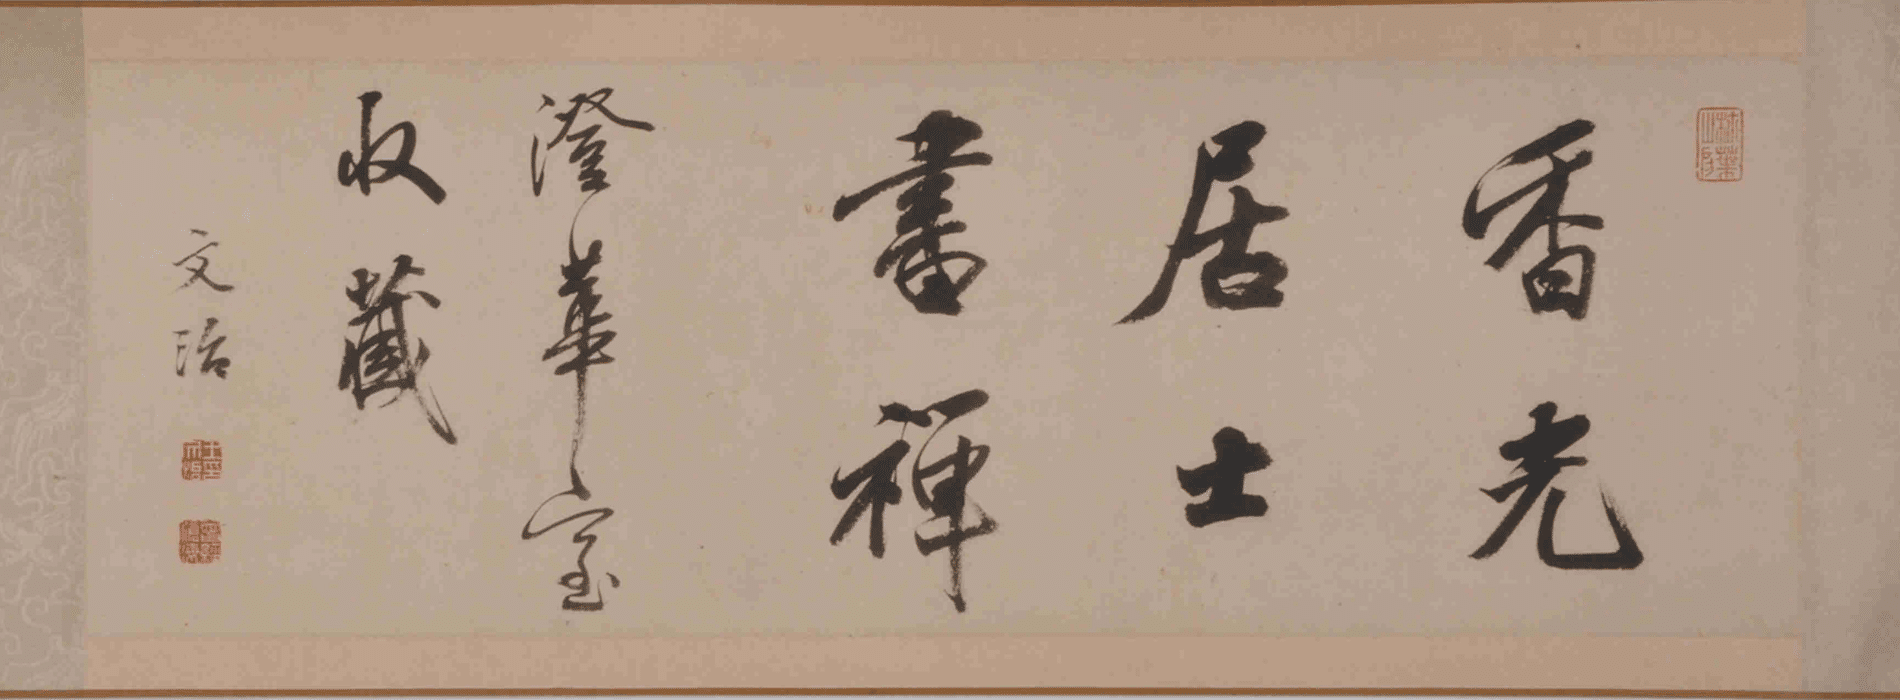 香光
居士
書禪
澄華室
收藏
文治